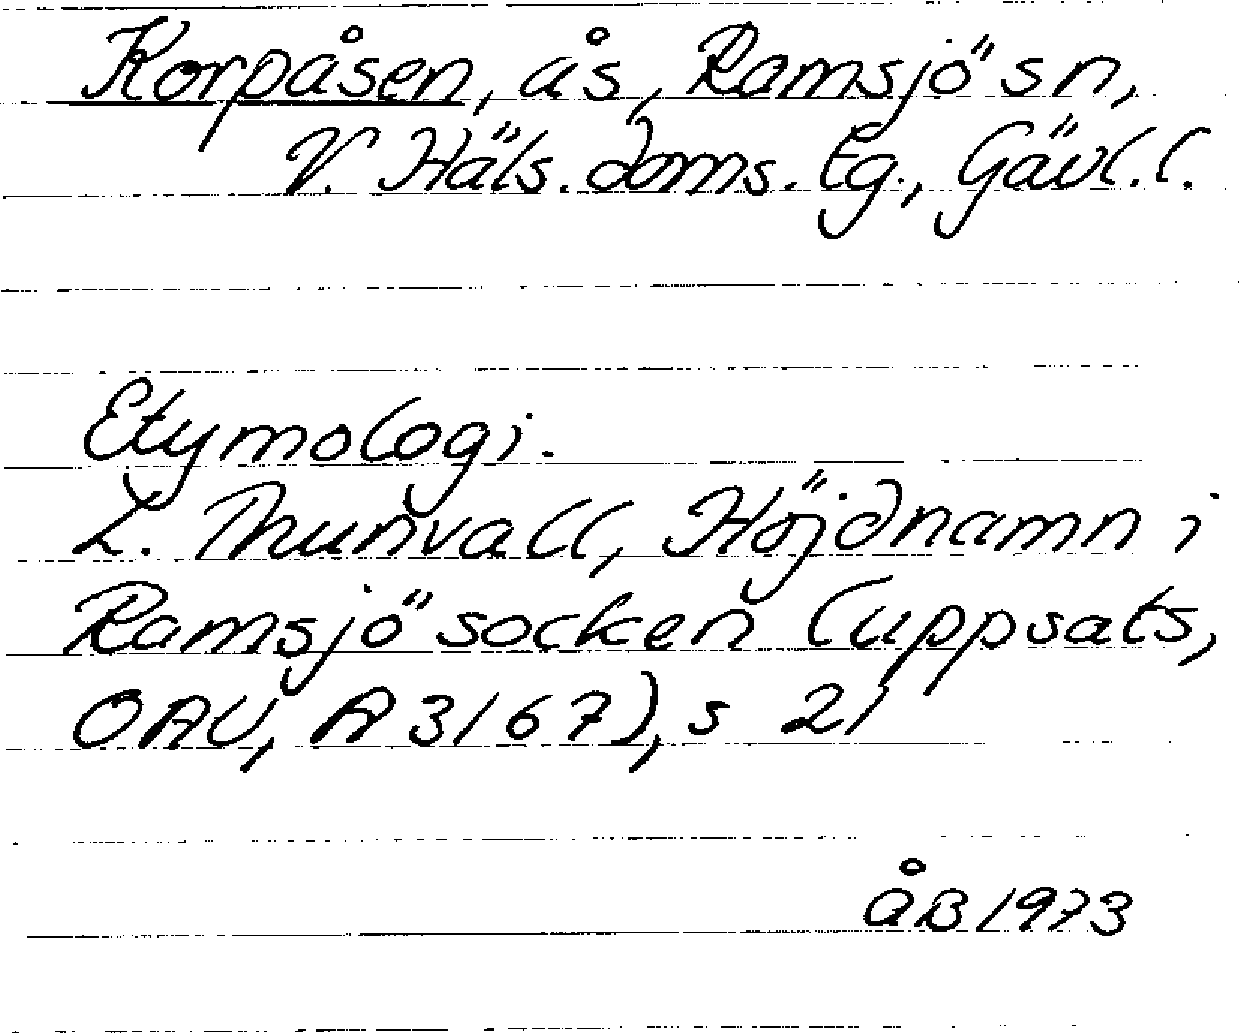 Korpåsen, ås, Ramsjö sn,
V. Häls. doms. tg., Gävl. l.
Etymologi.
L. Thunvall, Höjdnamn i
Ramsjö socken (uppsats,
OAU, A 3167), s 21
ÅB 1973